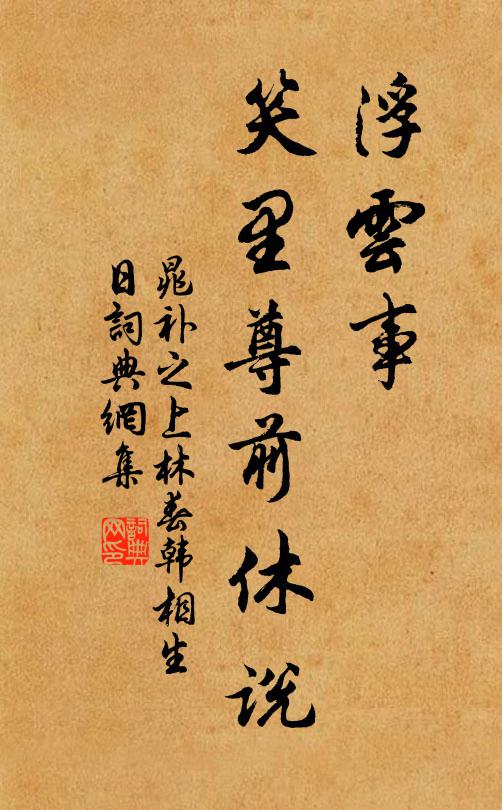 浮雲事
笑里尊前休说
晁补之上林春韩相生
日詞典網集
詞典
网印